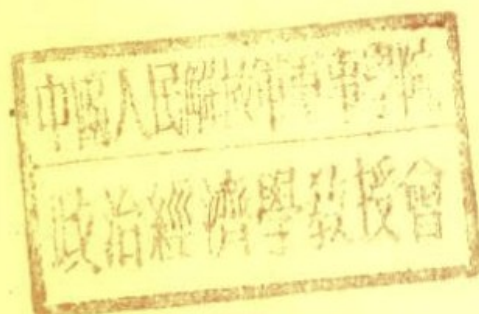 中國人民解放軍軍事學院
政治經濟學教授會